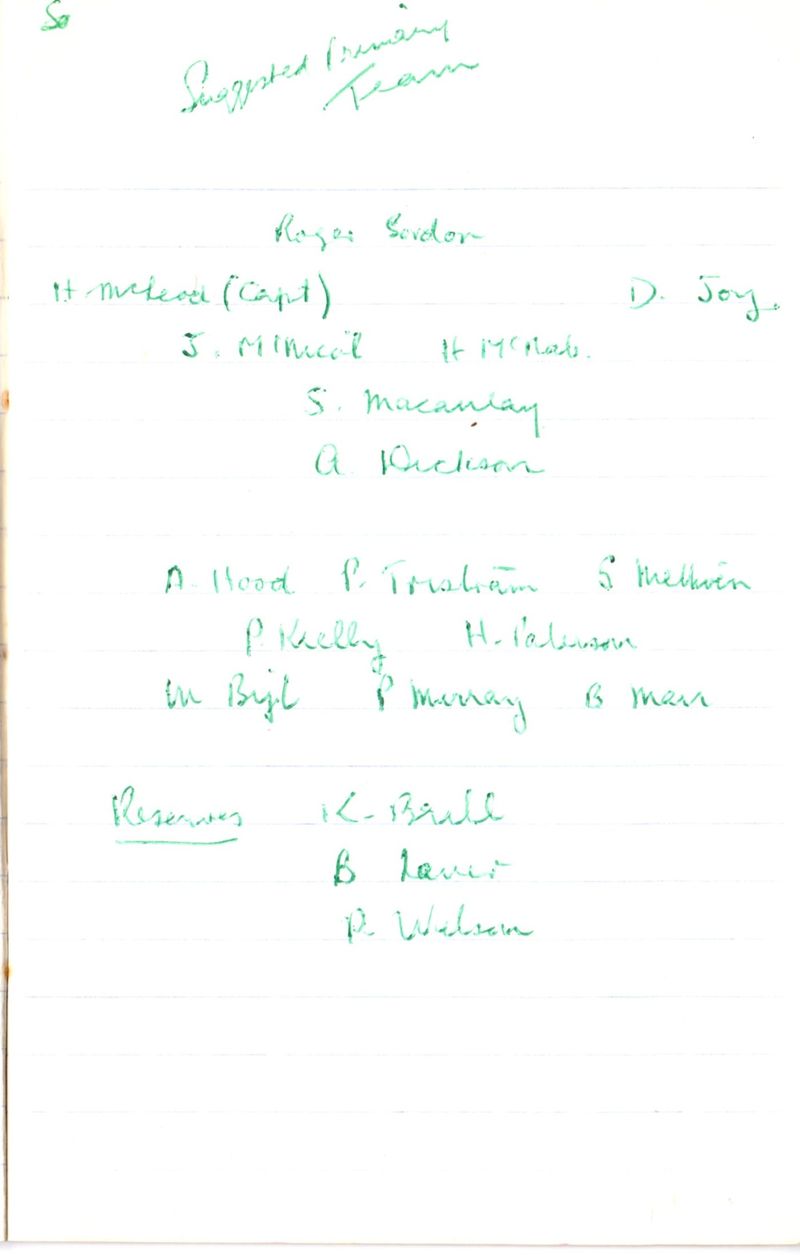 Suggested Primary
Team
Roger
H McLeod (Capt) D. Joy.
J. McNicol H McNab.
S. Macaulay
A. Dickson
A. Hood P. Tristram S Methven
P. Kielly H. Paterson
M Bijl P Murray B Marr
Reserves K. Brill
B
P. Wilson